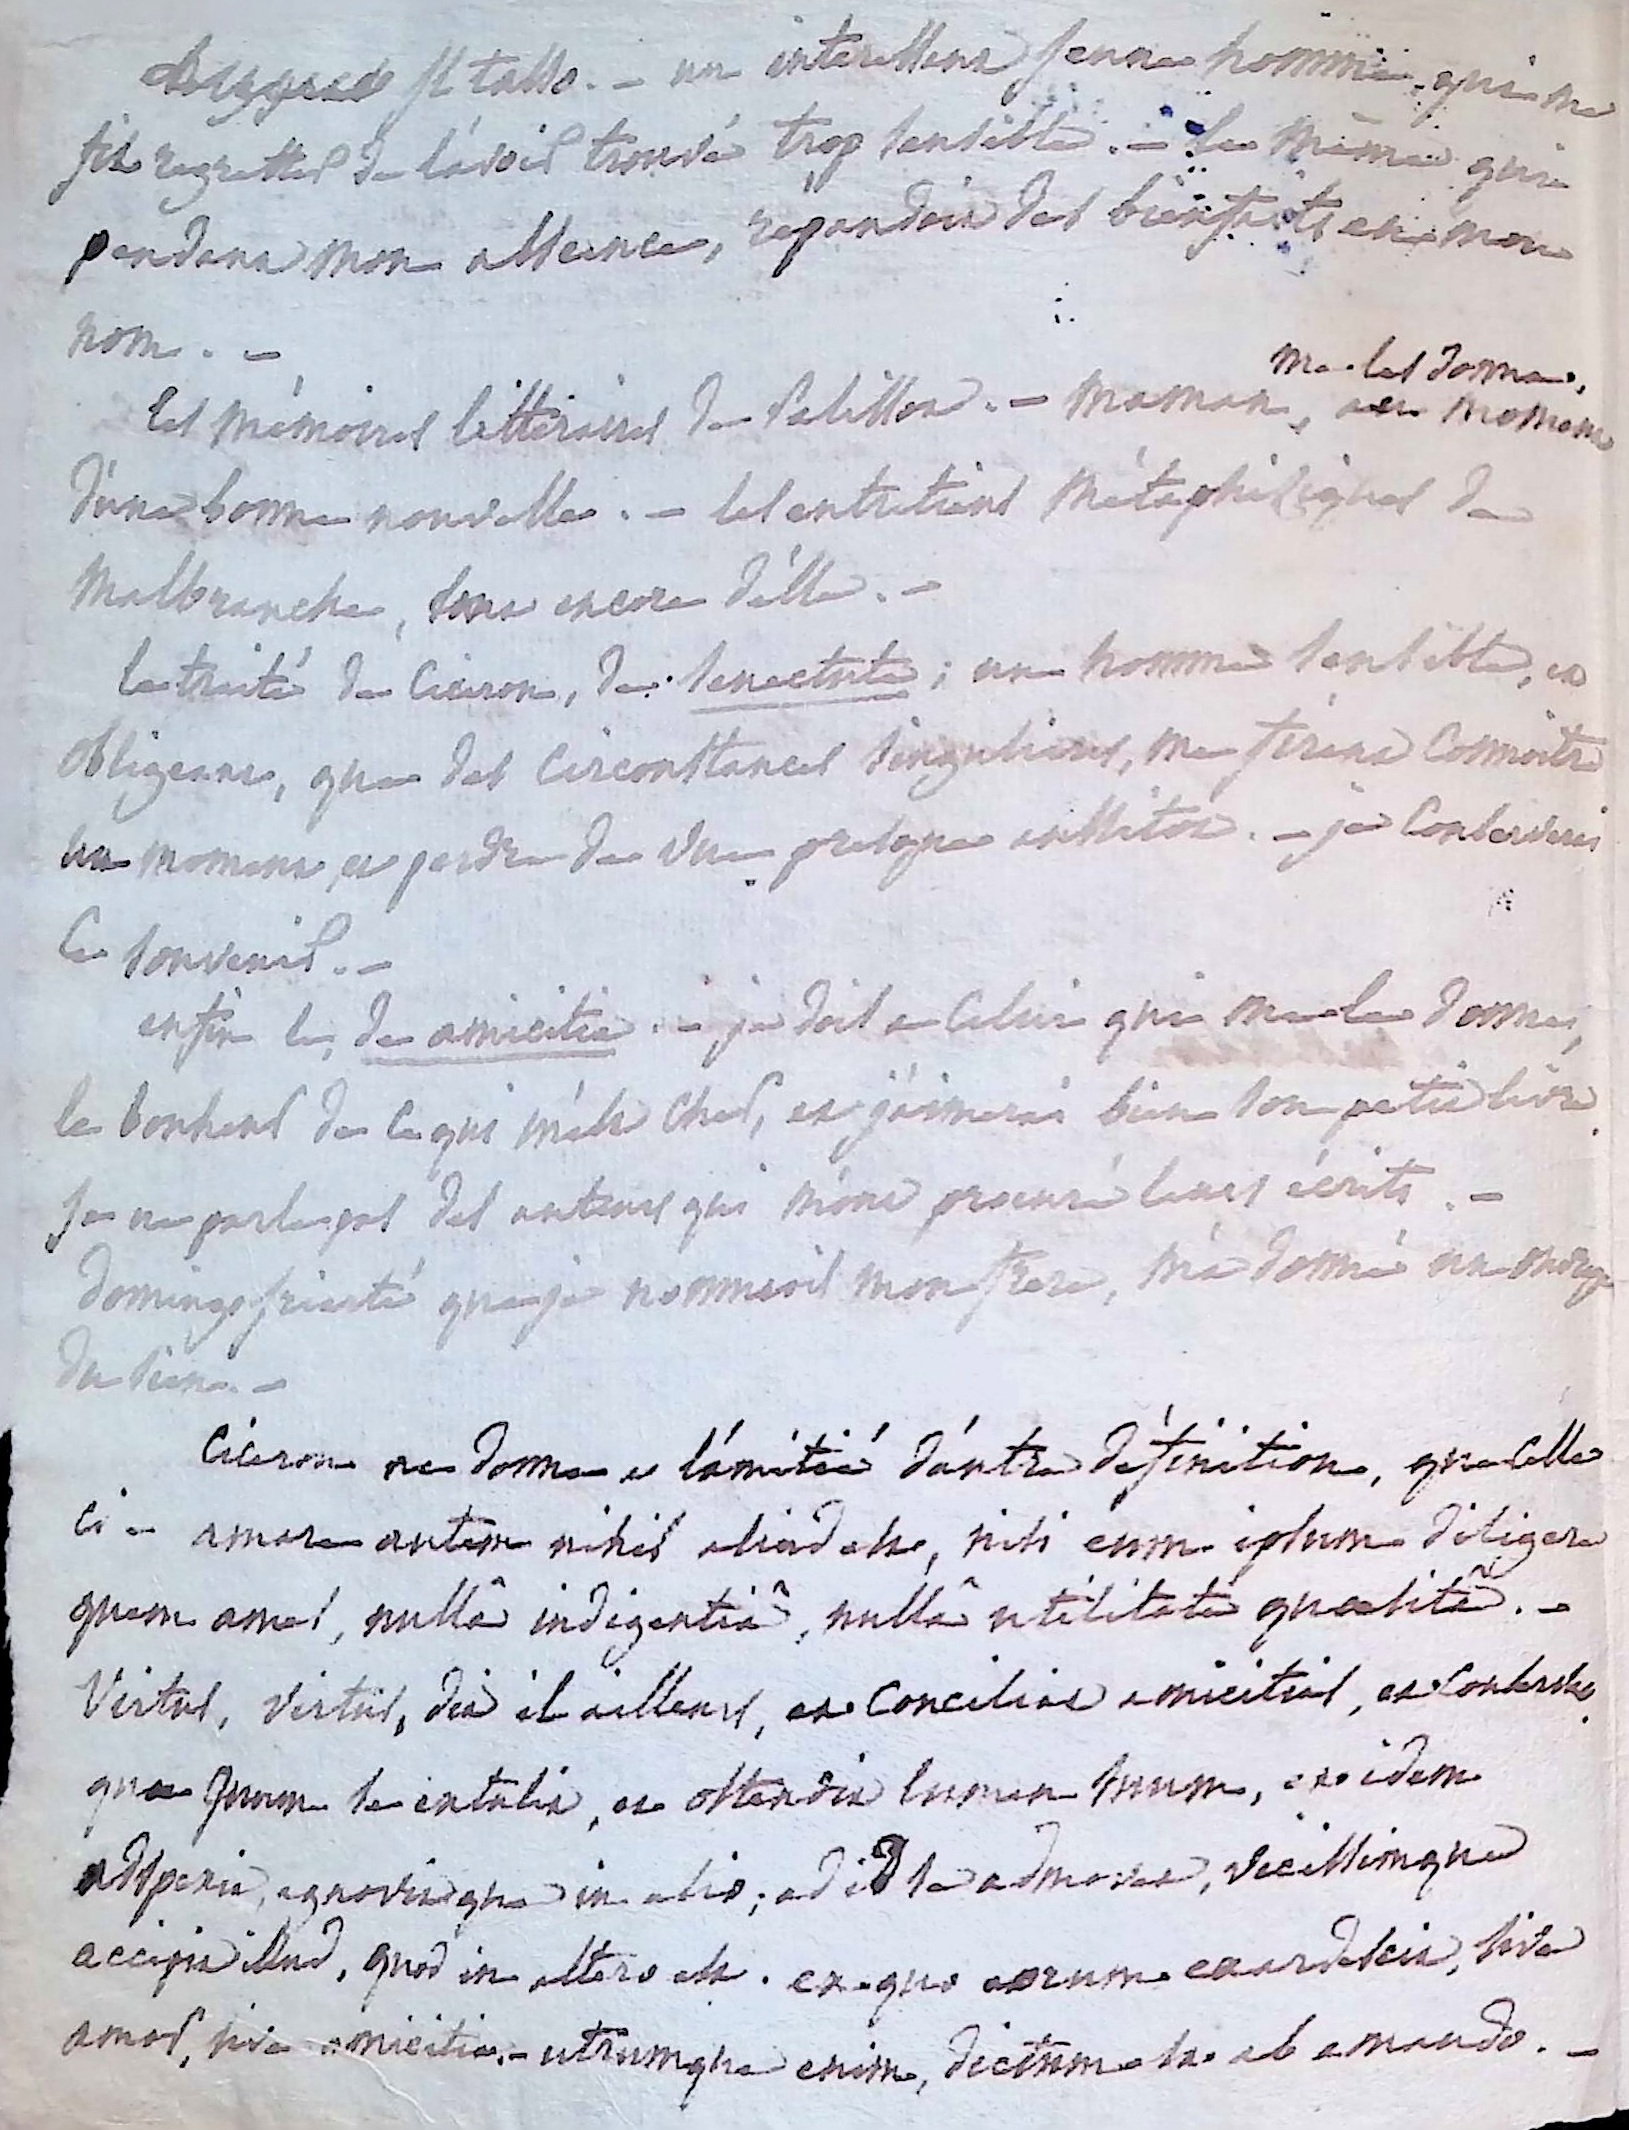 il tasso. - un interessant jeune homme, qui me
fit regretter de l'avoir trouvé trop sensible. - le même qui
pendant mon absence, répandoit des bienfaits en mon
nom. -
les mémoires littéraires de Palissot. - maman, me les donna, au moment
d'une bonne nouvelle. - les entretiens métaphisiques de
Malbranche, sont encore d'elle. -
le traité de Ciceron, de senectute ; un homme sensible, et
obligeant, que des circonstances singulieres, me firent connoitre
un moment et perdre de vue presque aussitot. - je conserverai
ce souvenir. -
enfin le, de amicitia. - je dois a celui qui me le donna,
le bonheur de ce qui m'est cher, et j'aimerai bien son petit livre.
je ne parle pas des auteurs qui m'ont procuré leurs écrits. -
domingo que je nommois mon frere, m'a donné un ouvrage
du sien. -
Ciceron ne donne a l'amitié d'autre définition, que celle
ci - amare autem nihil aliud est, nisi eum ipsum diligere
quem ames, nullâ indigentiâ, nullâ utilitate quæsitâ. -
Virtus, virtus, dit il ailleurs, et conciliat amicitias, et conservat.
quæ quum se extulit, et ostendit lumen suum, et idem
adspexit, agnovitque in alio ; ad id se admovet, vicissimque
accipit illud, quod in altero est. ex quo eorum exardescit, sive
amor, sive amicitia. - utrumque enim, dictum est ab amando. -